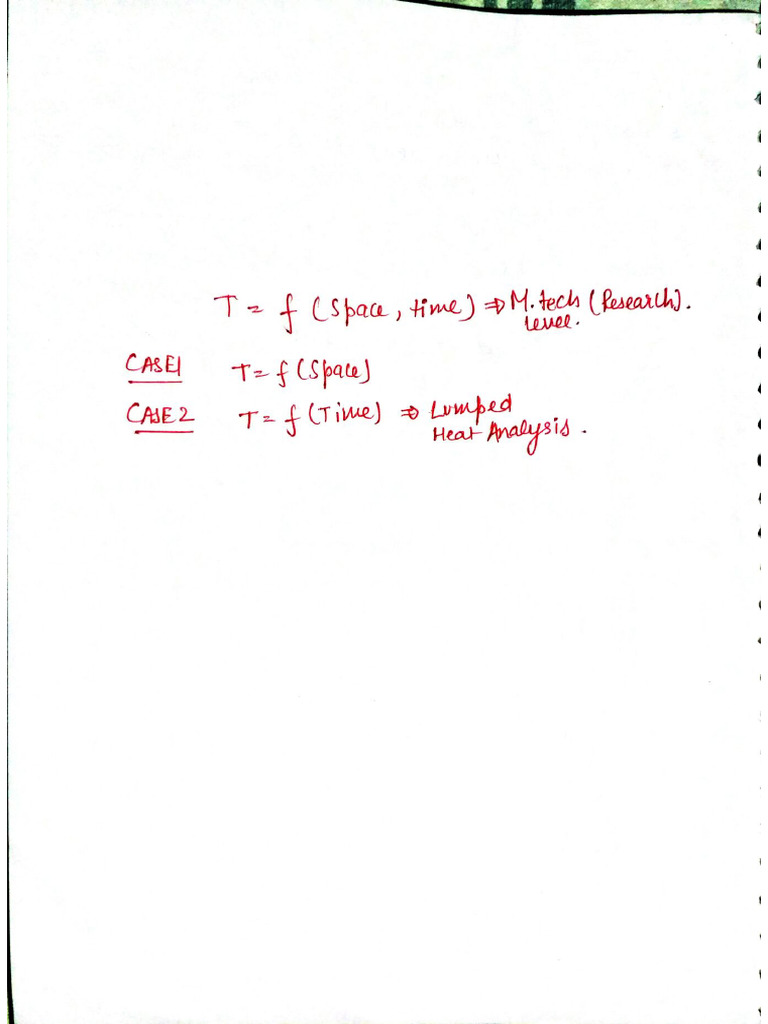 T = f (Space, time) ⇒ M.tech (Research).
level.
CASE1 T = f (Space)
CASE2 T = f (Time) ⇒ Lumped
Heat Analysis.